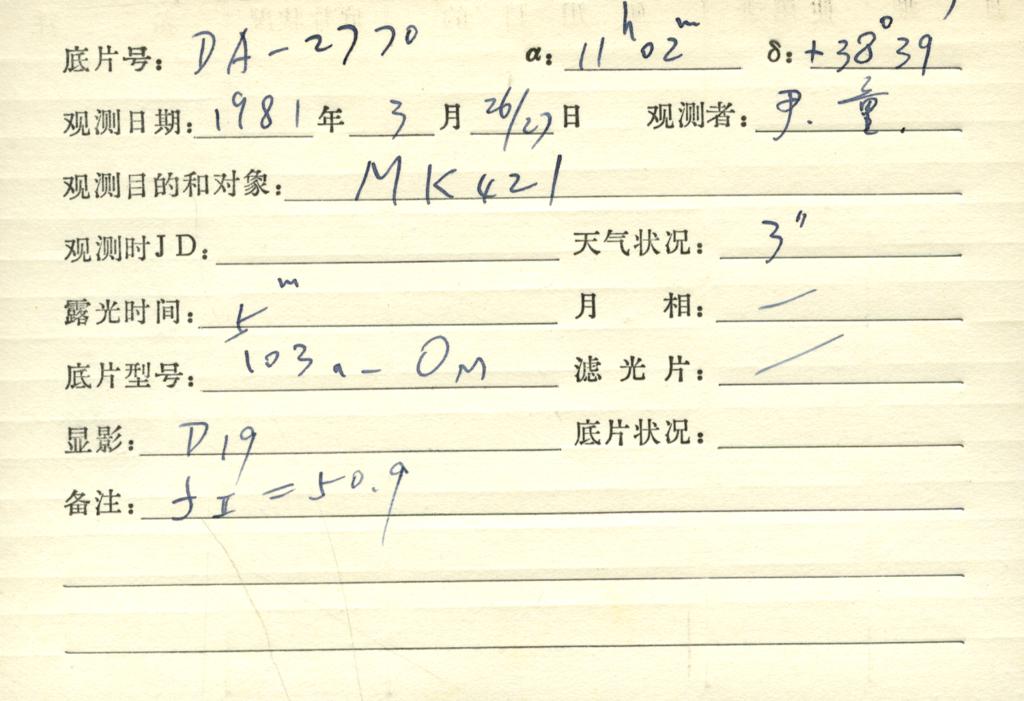 底片号: DA-2770 α: 11h02m δ: +38°39
观测日期: 1981年 3月 26/27日 观测者: 尹. 童.
观测目的和对象: MK421
观测时JD: 天气状况: 3"
露光时间: 5m 月 相: —
底片型号: 103a-OM 滤光片: —
显影: D19 底片状况:
备注: fⅡ=50.9